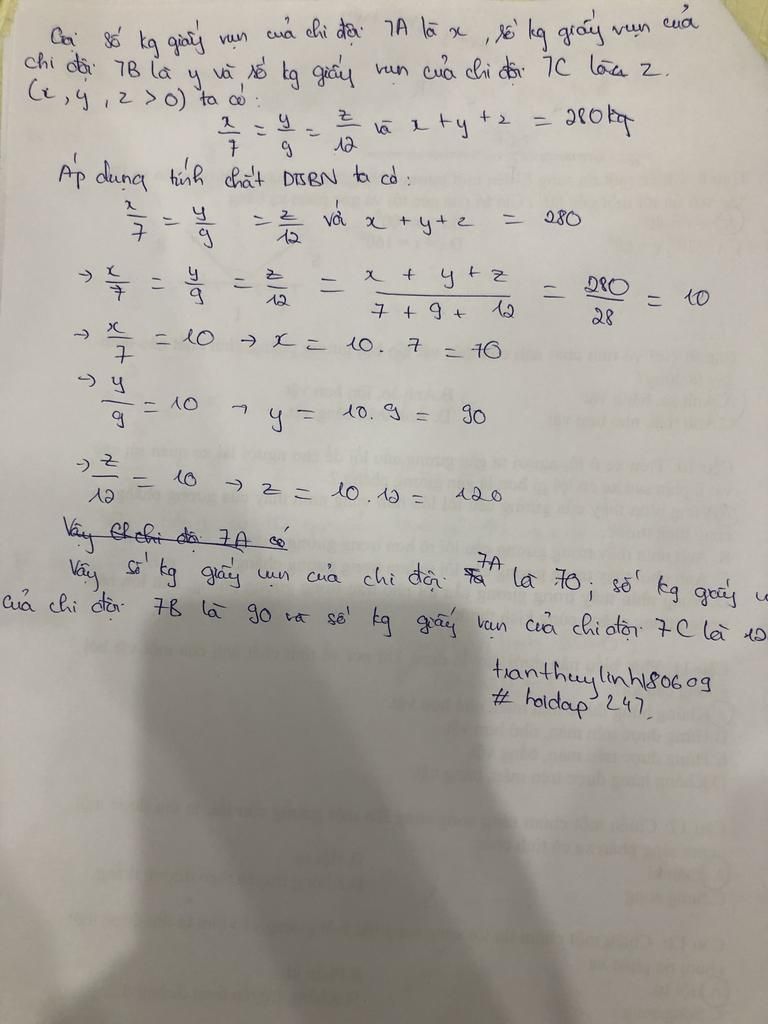 Gọi số kg giấy vụn của chi đội 7A là x, số kg giấy vụn của
chi đội 7B là y và số kg giấy vụn của chi đội 7C là z.
(x, y, z > 0) ta có:
x/7 = y/9 = z/12 và x + y + z = 280kg
Áp dụng tính chất DTSBN ta có:
x/7 = y/9 = z/12 với x + y + z = 280
→ x/7 = y/9 = z/12 = (x + y + z)/(7 + 9 + 12) = 280/28 = 10
→ x/7 = 10 → x = 10 . 7 = 70
→ y/9 = 10 → y = 10 . 9 = 90
→ z/12 = 10 → z = 10 . 12 = 120
Vậy chi đội 7A có
Vậy số kg giấy vụn của chi đội 7A là 70 ; số kg giấy
của chi đội 7B là 90 và số kg giấy vụn của chi đội 7C là 12
tranthuylinh180609
# hoidap 247.